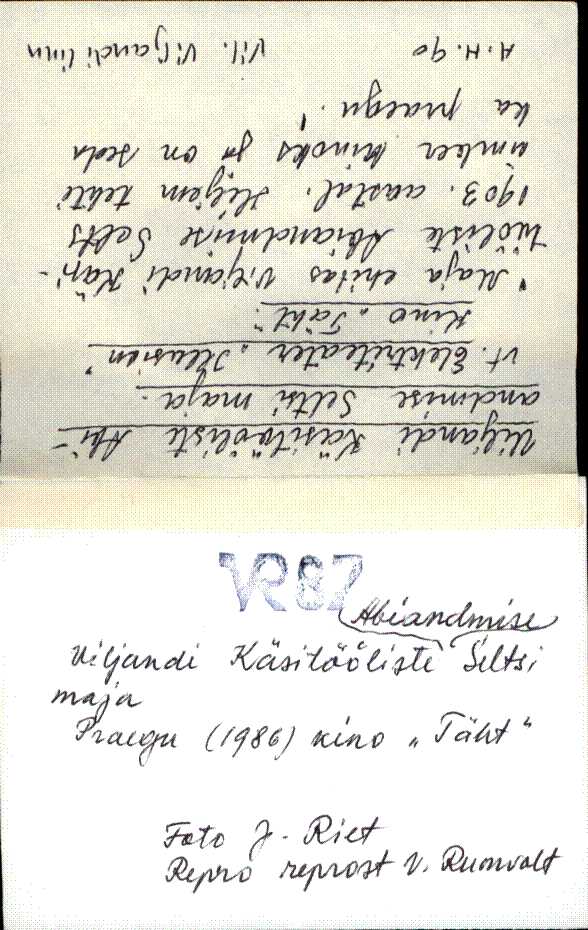 Viljandi Käsitööliste Abi-
andmise Seltsi maja.
vt. Elektriteater „Illusion"
Kino „Täht".
"Maja ehitas Viljandi Käsi-
tööliste Abiandmise Selts
1903. aastal. Hiljem tehti
ümber kinoks ja on seda
ka praegu."
A.H. 90 Vil. Viljandi linn
VR 87
Abiandmise
Viljandi Käsitööliste Seltsi
maja
Praegu (1986) kino „Täht“
Foto J. Riet
Repro reprost V. Rumvalt